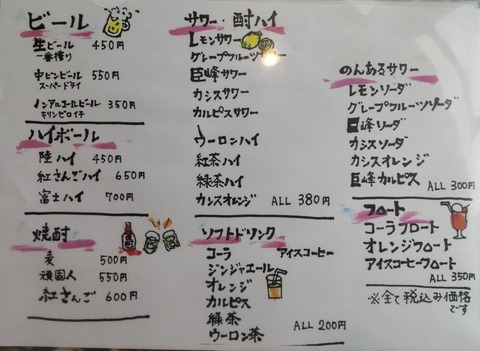 ビール
生ビール 450円
一番搾り
中ビンビール 550円
スーパードライ
ノンアルコールビール 350円
キリンゼロイチ
ハイボール
陸ハイ 450円
紅さんごハイ 650円
富士ハイ 700円
焼酎
麦 500円
頑固人 550円
紅さんご 600円
サワー・酎ハイ
レモンサワー
グレープフルーツサワー
巨峰サワー
カシスサワー
カルピスサワー
ウーロンハイ
紅茶ハイ
緑茶ハイ
カシスオレンジ ALL 380円
ソフトドリンク
コーラ アイスコーヒー
ジンジャエール
オレンジ
カルピス
緑茶
ウーロン茶 ALL 200円
のんあるサワー
レモンソーダ
グレープフルーツソーダ
巨峰ソーダ
カシスソーダ
カシスオレンジ
巨峰カルピス
ALL 300円
フロート
コーラフロート
オレンジフロート
アイスコーヒーフロート
ALL 350円
※全て税込み価格
です